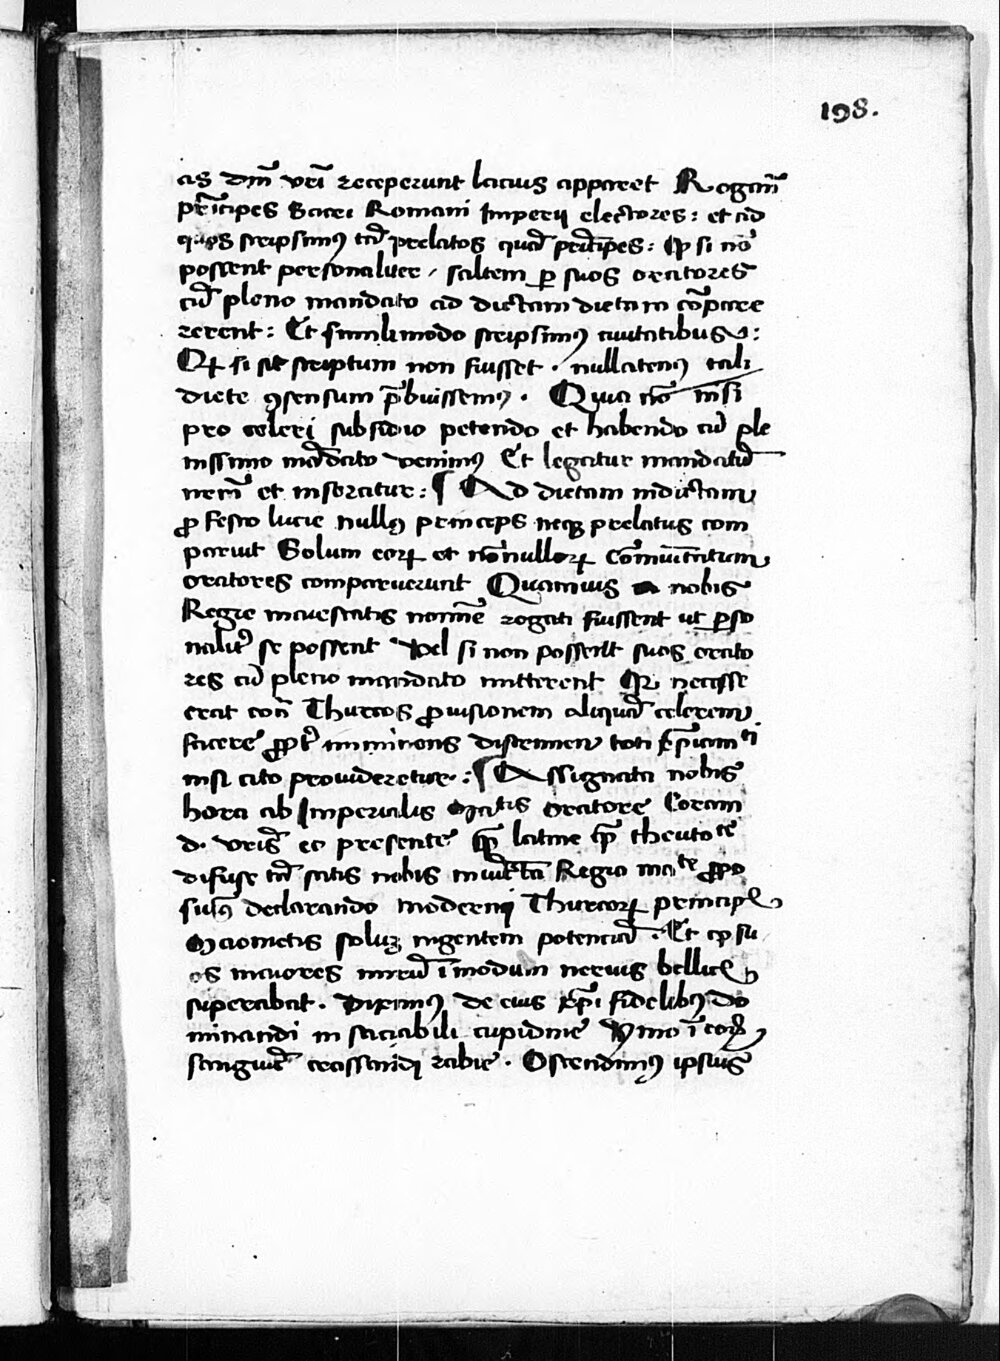 198.
as dm̄ vr̄i receperunt lacius apparet Rogam̄
pr̄icipes Sacri Romani Imperij electores: et ad
quos scripsimꝰ tā prelatos quā pri̅cipes: Qꝫ si nō
possent personaliter / saltem ꝑ suos oratores
cū pleno mandato ad dictam dietam cōpare
rerent: Et simili modo scripsimꝰ ciuitatibus:
Qꝫ si sic scriptum non fuisset . nullatenꝰ tali
diete ꝯsensum p̄buissemꝰ . Quia nō nisi
pro celeri subsidio petendo et habendo cū ple
nissimo mādato venimꝰ Et legatur mandatū
nr̄m et inseratur: ¶ Ad dietam indictam
ꝓ festo lucie nullꝰ princeps neqꝫ prelatus com
paruit Solum eoꝝ et nōnulloꝝ Comuni̅tatum
oratores comparuerunt Quamuis a nobis
Regie maiestatis nomīe rogati fuissent ut ꝑso
nalit̓ se possent Vel si non possent suos orato
res cū pleno mandato mitterent Qꝛ necesse
erat cont̄ Thurcos ꝓuisionem aliquā celerem
facere ꝓpt̓ iminens discrimen toti xp̄iani ti
nisi cito prouideretur: ¶ Assignata nobis
hora ab Imperialis Matis oratore Coram
d. vris̄ eo presente qꝫ latine qꝫ theuto ce
difuse tn̄ satis nobis iniūcta Regia ma te ꝓpo
suimꝰ declarando moderni Thurcoꝝ principis
Maometis soluꝫ ingentem potenciā . Et qꝫ su
os maiores mirū ī modum neruis bellicis
superabat . Diximꝰ de eius xp̄i fidelibꝰ do
minandi in saciabili cupidine Ymo ī eoꝝ
sanguīe crassandi rabie . Ostendimꝰ ipsius